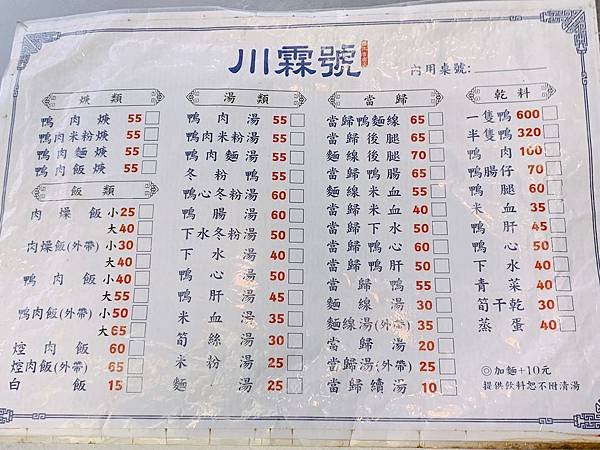 川霖號
內用桌號:
焿類
鴨肉焿 55
鴨肉米粉焿 55
鴨肉麵焿 55
鴨肉飯焿 55
飯類
肉燥飯 小25
大40
肉燥飯(外帶) 小30
大40
鴨肉飯 小40
大55
鴨肉飯(外帶) 小50
大65
焢肉飯 60
焢肉飯(外帶) 65
白飯 15
湯類
鴨肉湯 55
鴨肉米粉湯 55
鴨肉麵湯 55
冬粉鴨 55
鴨心冬粉湯 60
鴨腸湯 60
下水冬粉湯 50
下水湯 40
鴨心湯 50
鴨肝湯 45
米血湯 35
筍絲湯 30
米粉湯 25
麵湯 25
當歸
當歸鴨麵線 65
當歸後腿 65
麵線後腿 70
當歸鴨腸 65
麵線米血 55
當歸米血 40
當歸下水 50
當歸鴨心 60
當歸鴨肝 50
當歸鴨 55
麵線湯 30
麵線湯(外帶) 35
當歸湯 20
當歸湯(外帶) 25
當歸續湯 10
乾料
一隻鴨 600
半隻鴨 320
鴨肉 100
鴨腸仔 70
鴨腿 60
米血 35
鴨肝 45
鴨心 50
下水 40
青菜 40
筍干乾 30
蒸蛋 40
◎加麵+10元
提供飲料恕不附清湯